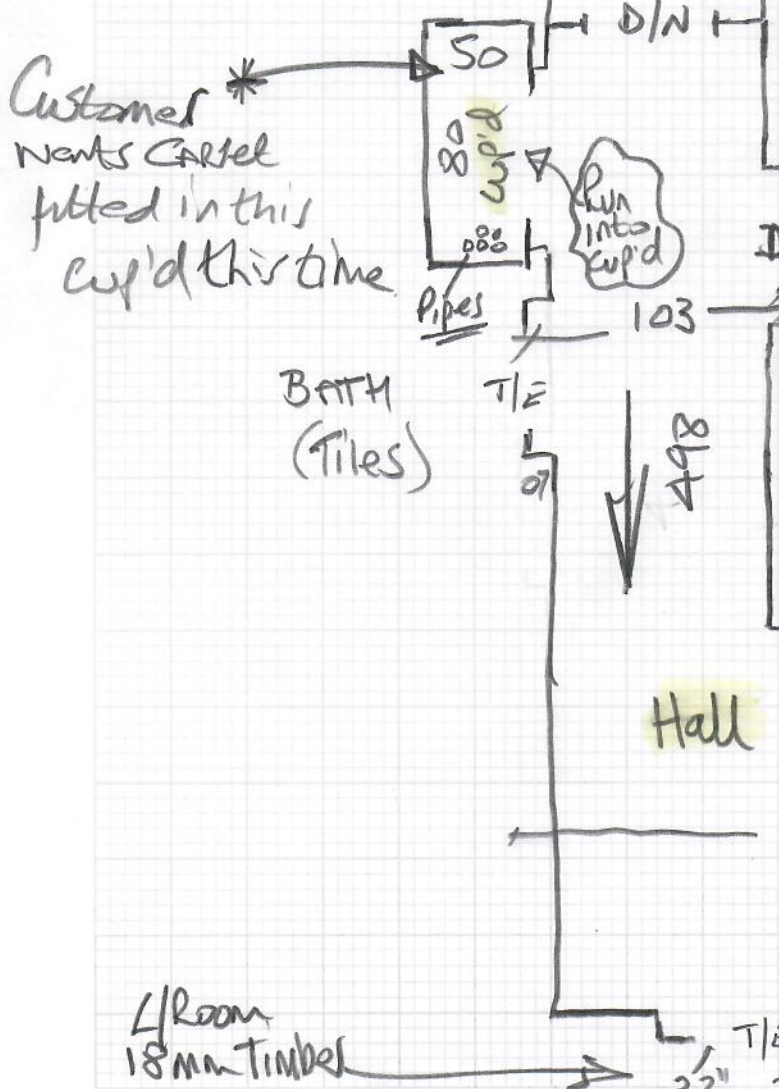 50
D/N
Customer
wants CARPET
fitted in this
cup'd this time
80
cup'd
Run
into
cup'd
Pipes
103
BATH
(Tiles)
T/E
07
498
Hall
L/Room
18mm Timber